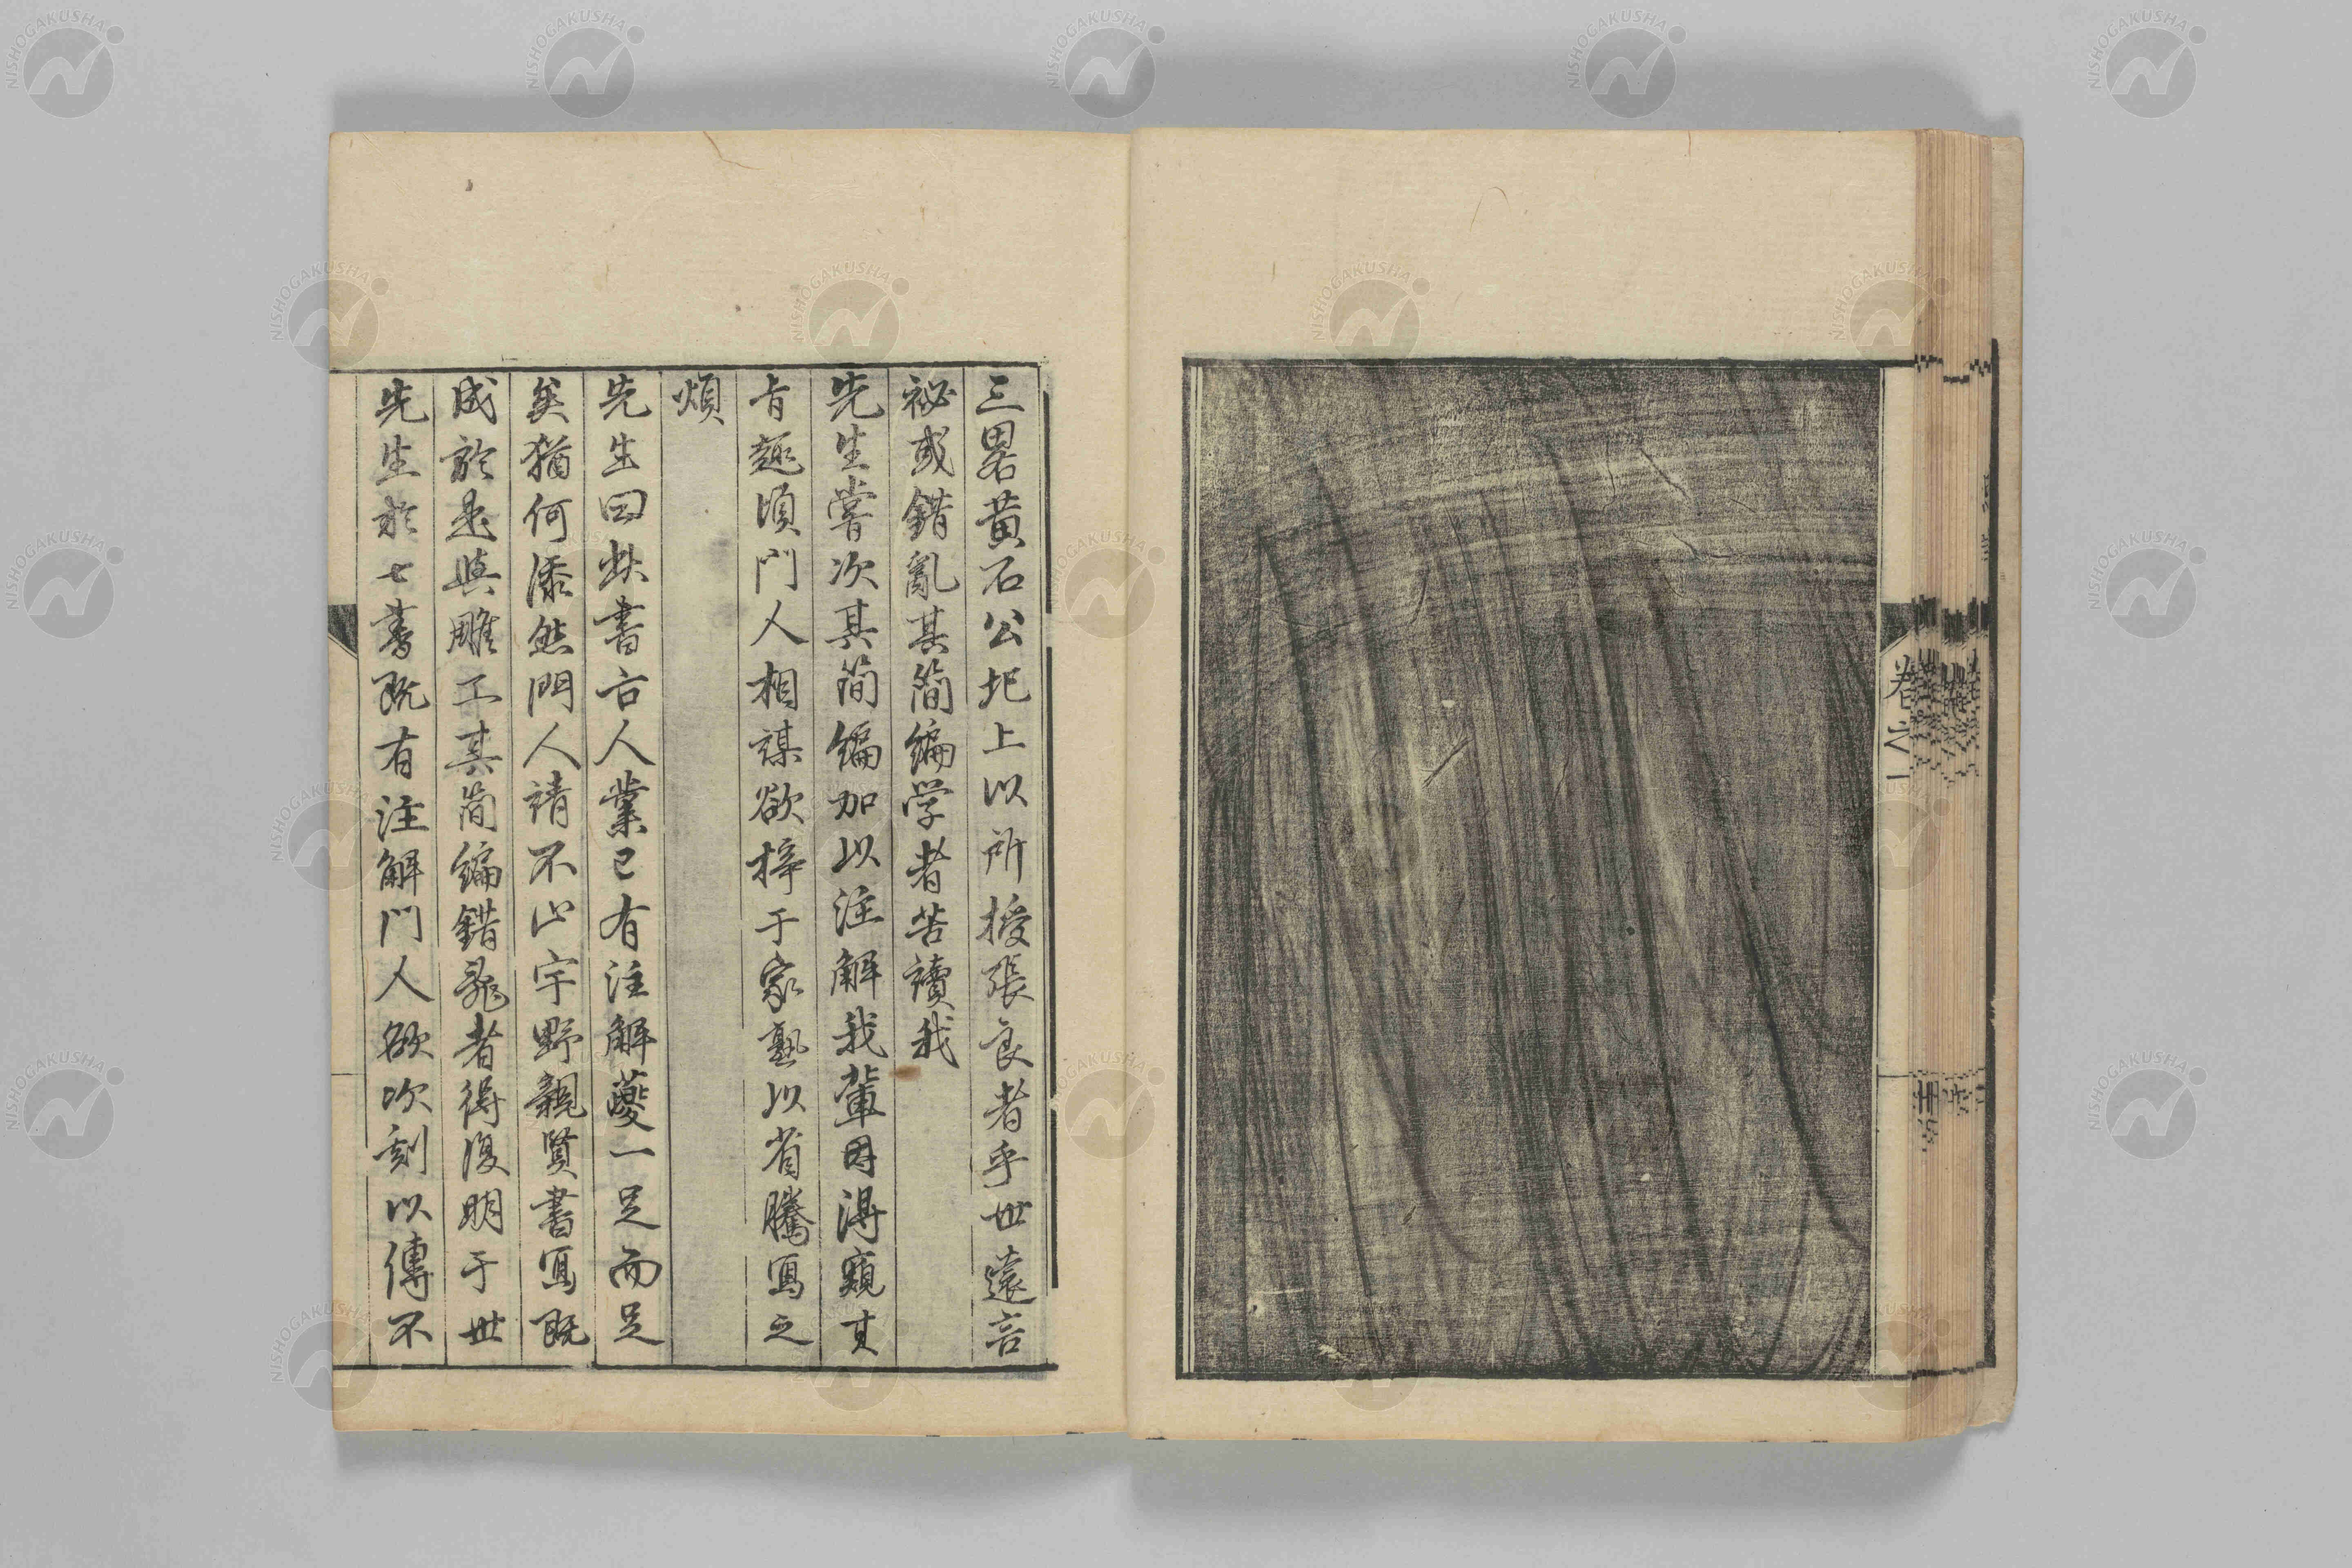 卷之一
三畧黃石公圯上以所授張良者乎世遠言
祕或錯亂其簡編学者苦讀我
先生嘗次其簡編加以注解我輩因得窺其
旨趣頃門人相謀欲梓于家塾以省騰寫之
煩
先生曰此書古人業已有注解夔一足而足
矣猶何添然門人請不止宇野親賢書寫既
成於是與雕工其簡編錯亂者得復明于世
先生於七書既有注解門人欲次刻以傳不
NISHOGAKUSHA